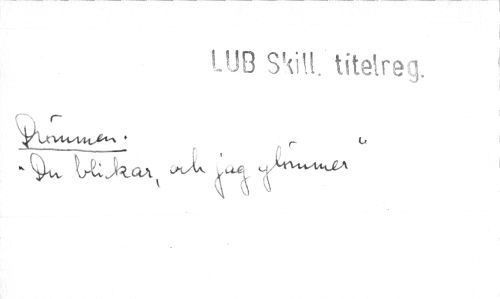 LUB Skill. titelreg.
Drömmen.
"Du blickar, och jag glömmer"